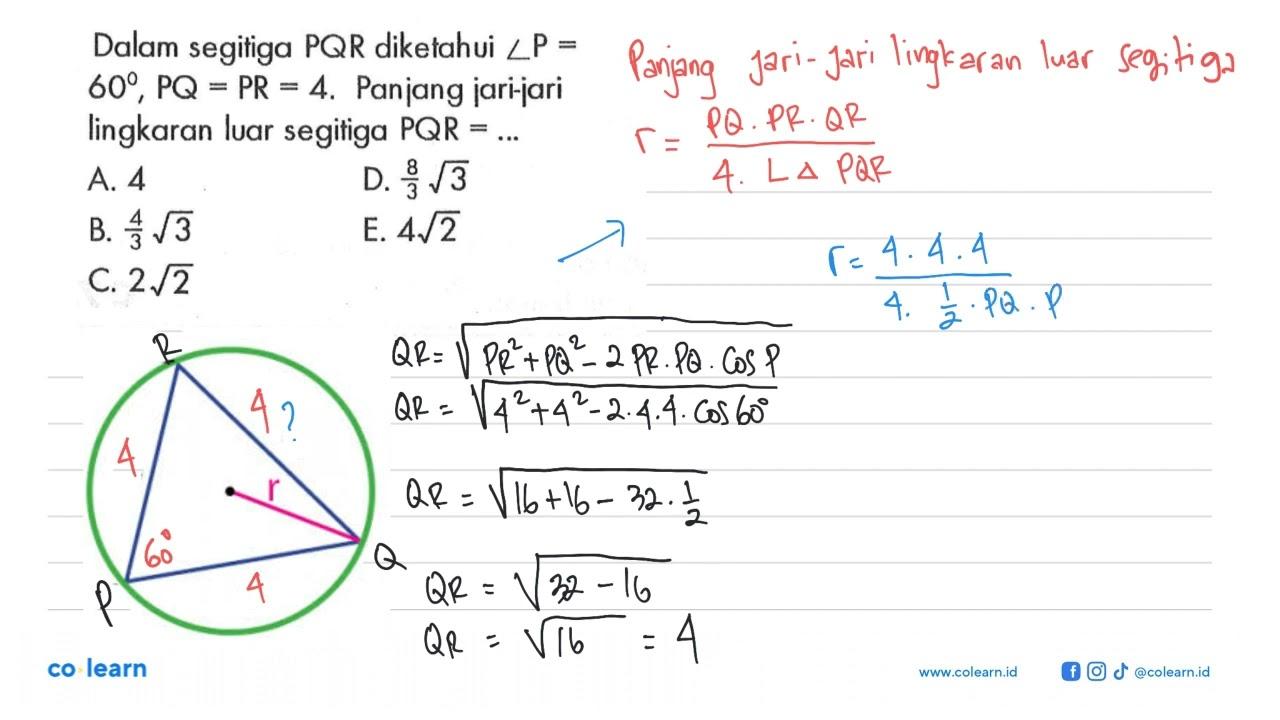 Dalam segitiga PQR diketahui ∠P =
60⁰, PQ = PR = 4. Panjang jari-jari
lingkaran luar segitiga PQR = ...
A. 4
D. 8/3 √3
B. 4/3 √3
E. 4√2
C. 2√2
Panjang jari-jari lingkaran luar segitiga
r = PQ . PR . QR / 4. L△ PQR
r = 4 . 4 . 4 / 4. 1/2 . PQ . P
QR = √(PR² + PQ² - 2 PR . PQ . Cos P)
QR = √(4² + 4² - 2 . 4 . 4 . Cos 60°)
QR = √(16 + 16 - 32 . 1/2)
QR = √(32 - 16)
QR = √16 = 4
R
4 ?
4
r
60°
4
P
Q
co learn
www.colearn.id
@colearn.id